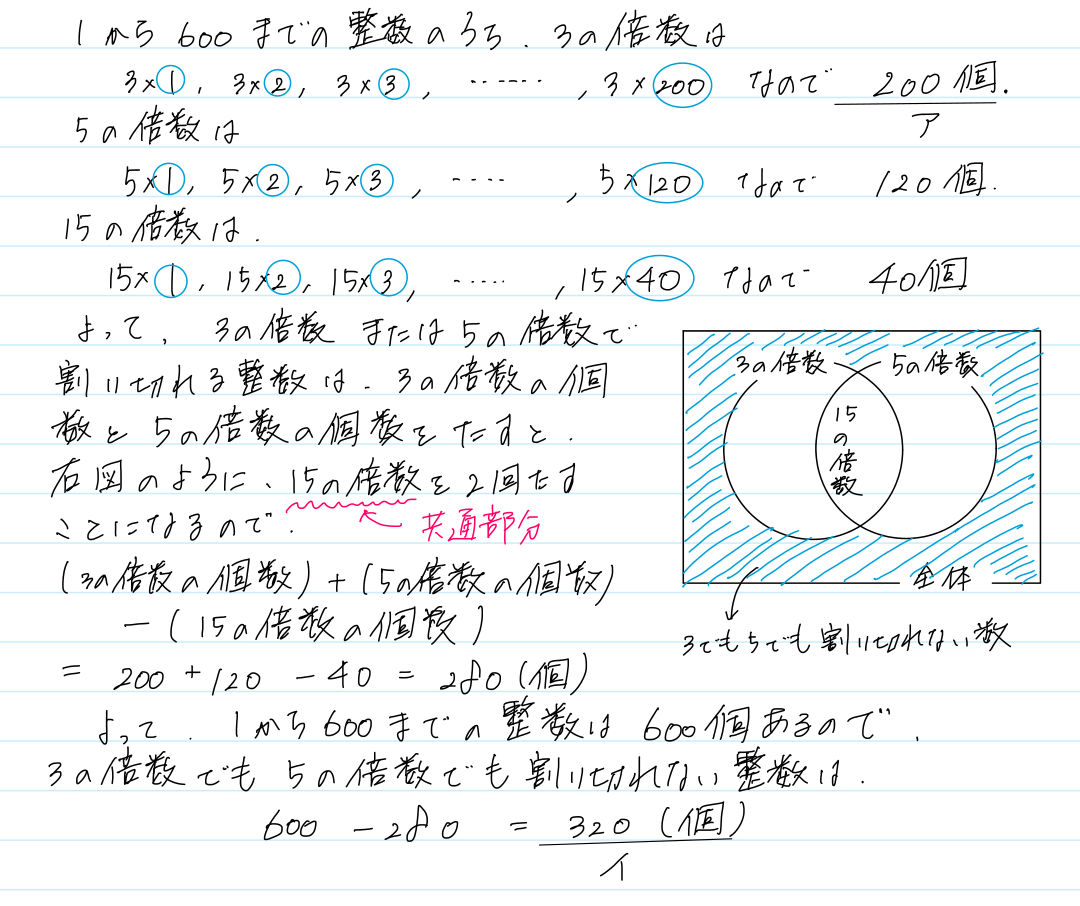 1から600までの整数のうち、3の倍数は
3×1, 3×2, 3×3, ......, 3×200 なので 200個.
ア
5の倍数は
5×1, 5×2, 5×3, ....., 5×120 なので 120個.
15の倍数は.
15×1, 15×2, 15×3, ....., 15×40 なので 40個
よって、3の倍数 または 5の倍数で
割り切れる整数は、3の倍数の個
数と 5の倍数の個数をたすと、
右図のように、15の倍数を2回たす
ことになるので、
共通部分
(3の倍数の個数)+(5の倍数の個数)
-(15の倍数の個数)
= 200 + 120 - 40 = 280(個)
3の倍数 5の倍数
15の倍数
全体
3でも5でも割り切れない数
よって、1から600までの整数は600個あるので、
3の倍数でも5の倍数でも割り切れない整数は、
600 - 280 = 320(個)
イ